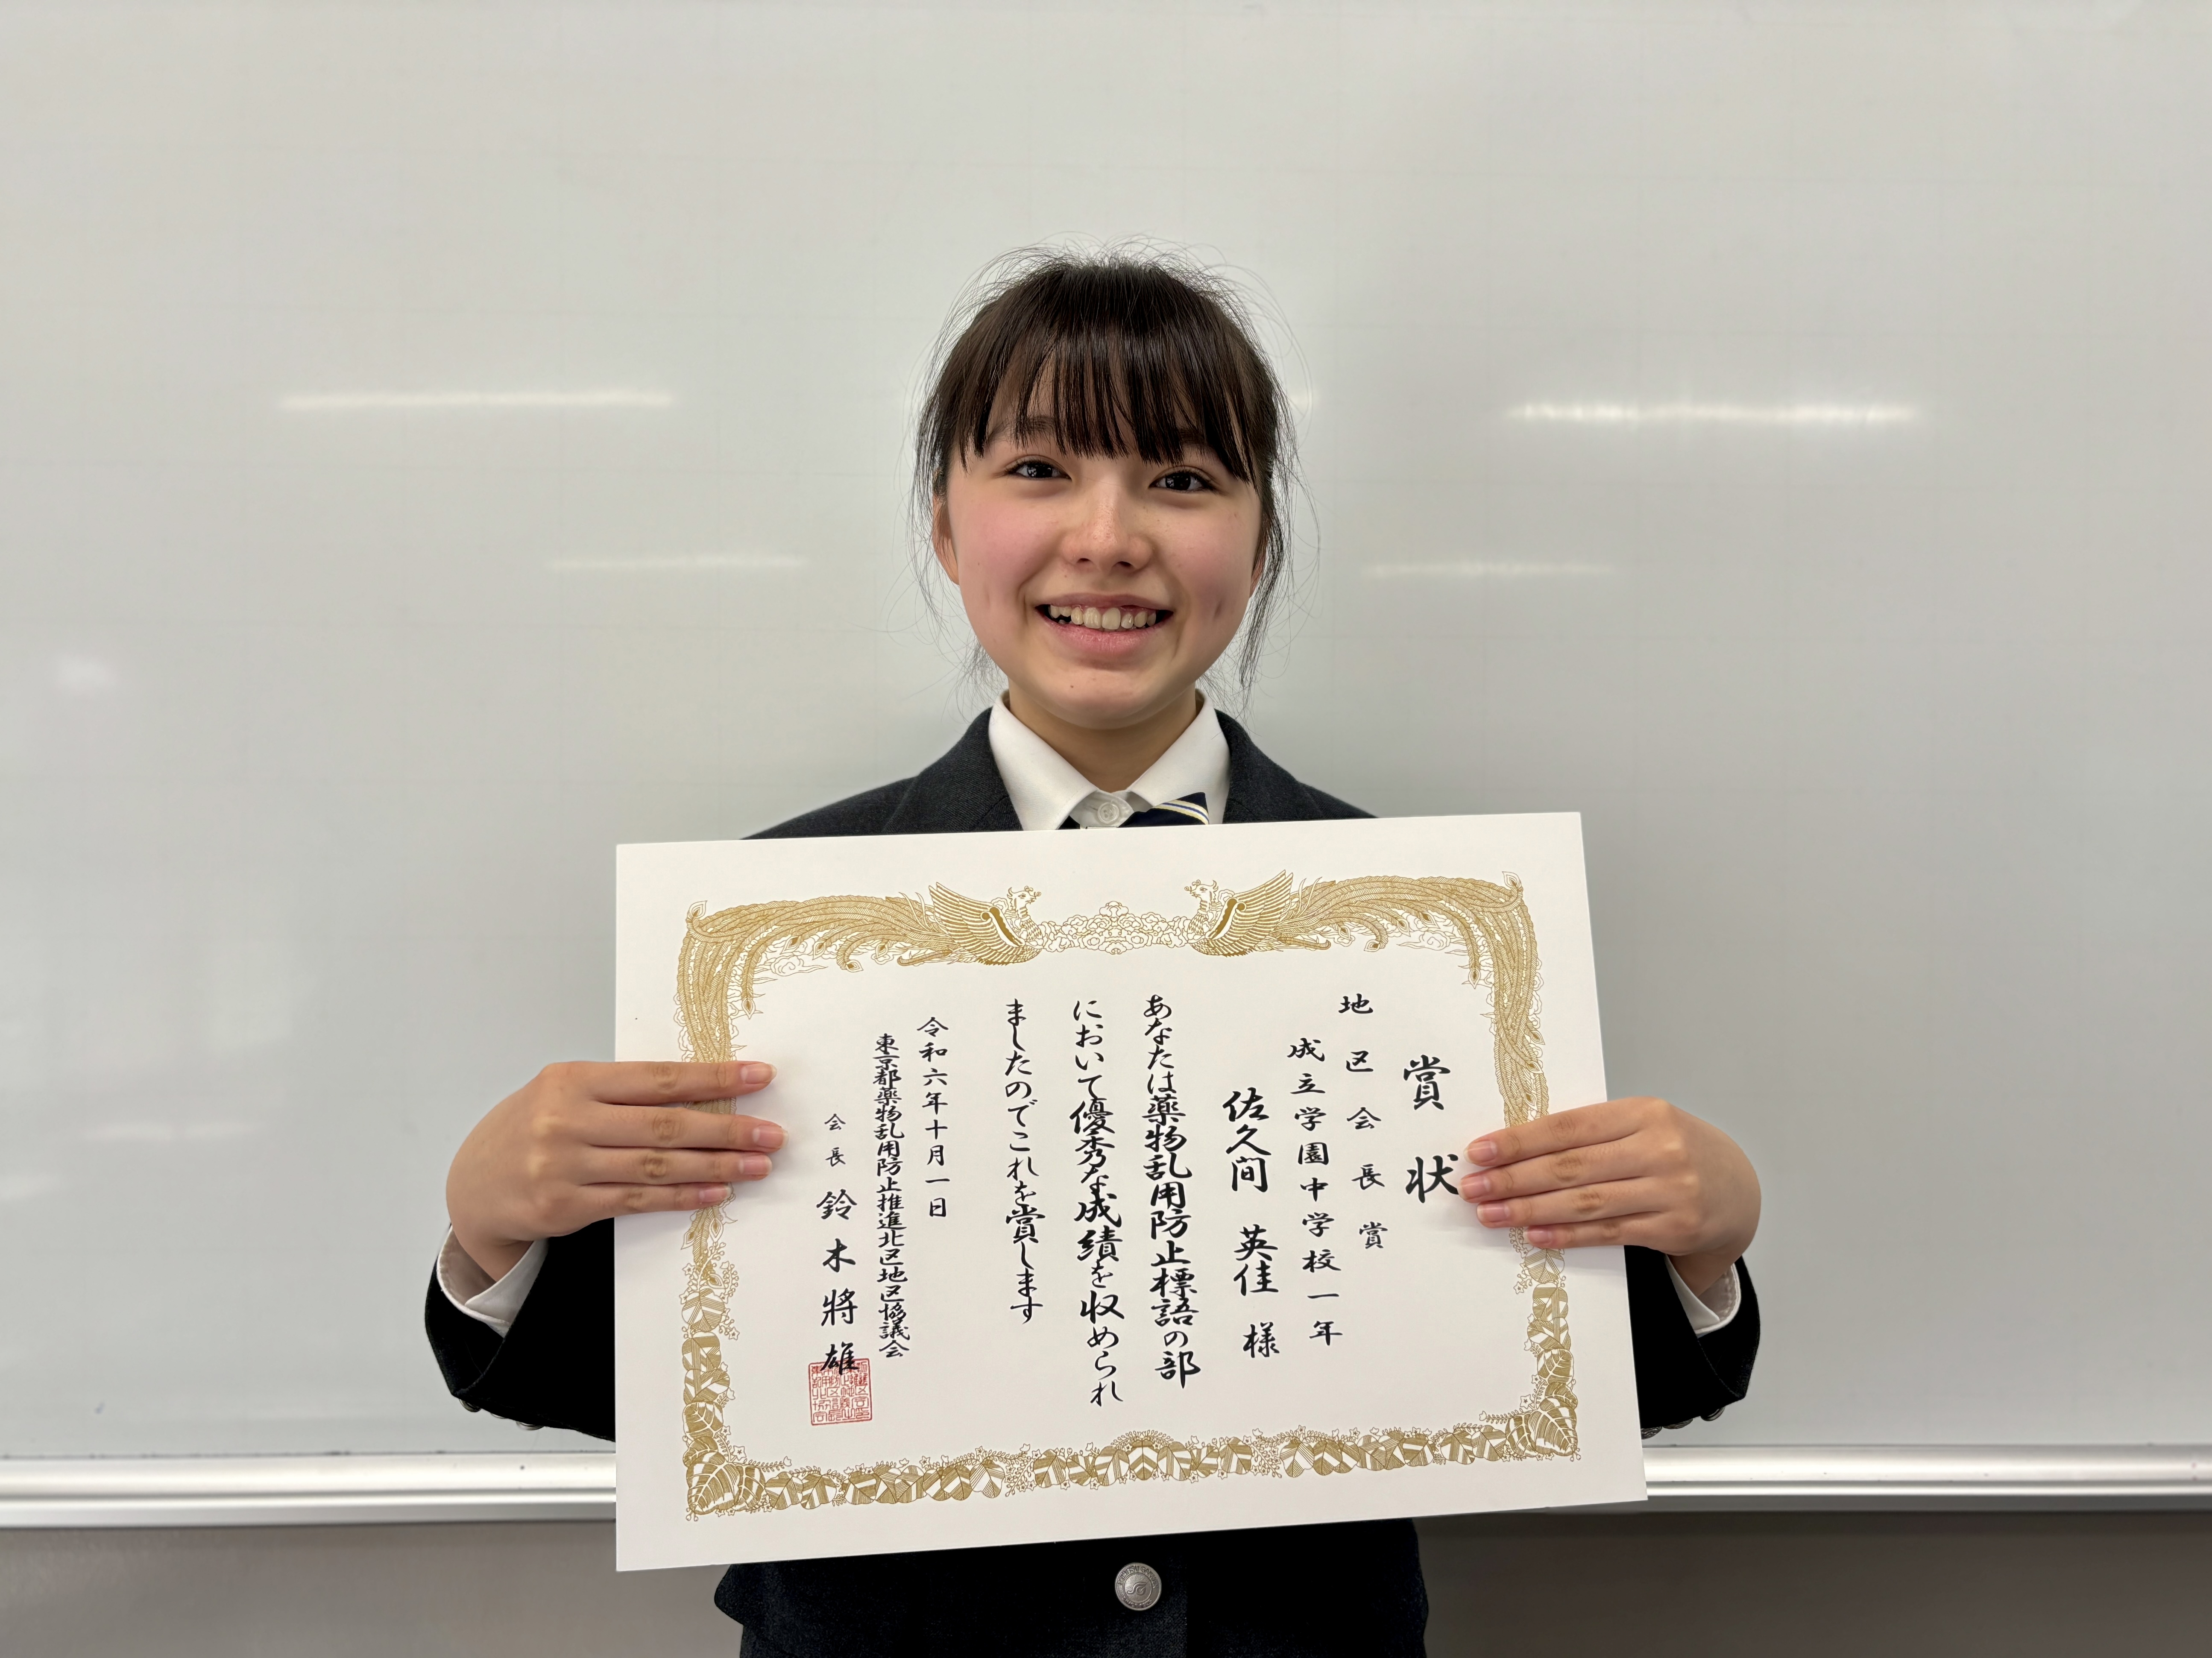 賞状
地区会長賞
成立学園中学校一年
佐久間 英佳 様
あなたは薬物乱用防止標語の部
において優秀な成績を収められ
ましたのでこれを賞します
令和六年十月一日
東京都薬物乱用防止推進北区地区協議会
会長 鈴木將雄